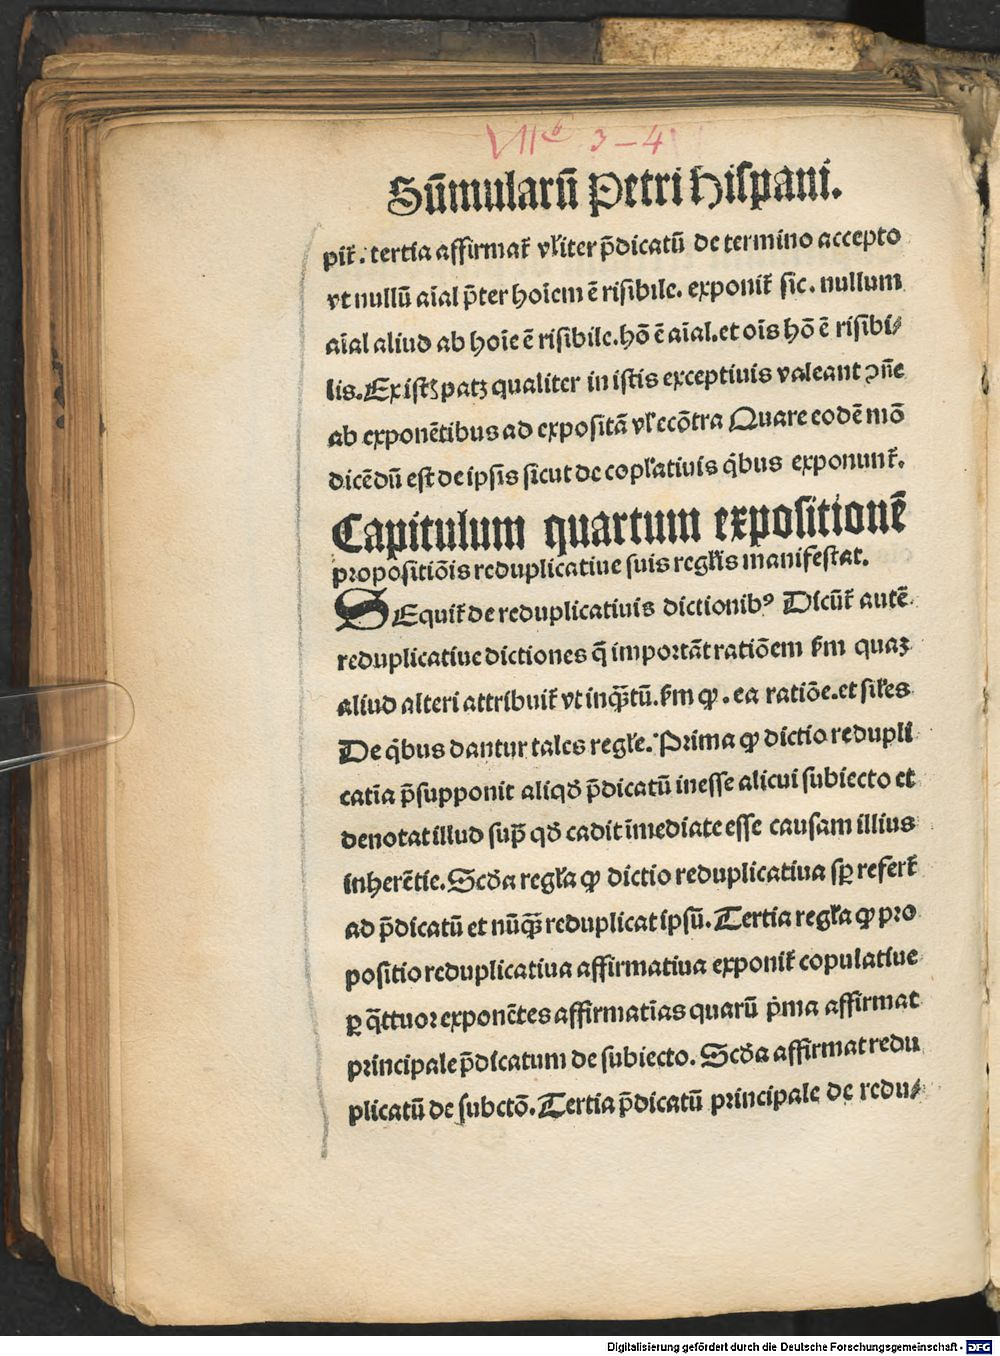 VIIb 3–4
Sūmularū Petri Hiſpani.
pit᷑. tertia affirmat᷑ vl̓iter p̄dicatū de termino accepto
vt nullū aīal p̄ter hoīem ē riſibile. exponit᷑ ſic. nullum
aīal aliud ab hoīe ē riſibile. hō ē aīal. et oīs hō ē riſibi⸗
lis. Ex iſtꝫ patꝫ qualiter in iſtis exceptiuis valeant ↄn̄e
ab exponētibus ad expoſitā vl̓ ecōtra Quare eodē mō
dicēdū eſt de ipſis ſicut de copl̓atiuis q̇bus exponunt᷑.
Capitulum quartum expoſitionē
propoſitiōis reduplicatiue ſuis regl̓is manifeſtat.
SEquit᷑ de reduplicatiuis dictionibꝰ Dicūt᷑ autē
reduplicatiue dictiones q̄ importāt ratiōem ẜm quaꝫ
aliud alteri attribuit᷑ vt inq̄ꝫtū. ẜm ꝙ. ea ratiōe. et ſil̓es
De q̇bus dantur tales regl̓e. Prima ꝙ dictio redupli
catīa p̄ſupponit aliqḋ p̄dicatū ineſſe alicui ſubiecto et
denotat illud ſup̄ qḋ cadit īmediate eſſe cauſam illius
inherētie. Scḋa regl̓a ꝙ dictio reduplicatiua ſꝑ refert᷑
ad p̄dicatū et nūq̄ꝫ reduplicat ipſū. Tertia regl̓a ꝙ pro
poſitio reduplicatiua affirmatiua exponit᷑ copulatiue
ꝑ q̄ttuor exponētes affirmatīas quarū ṗma affirmat
principale p̄dicatum de ſubiecto. Scḋa affirmat redu
plicatū de ſubctō. Tertia p̄dicatū principale de redu⸗
Digitalisierung gefördert durch die Deutsche Forschungsgemeinschaft - DFG